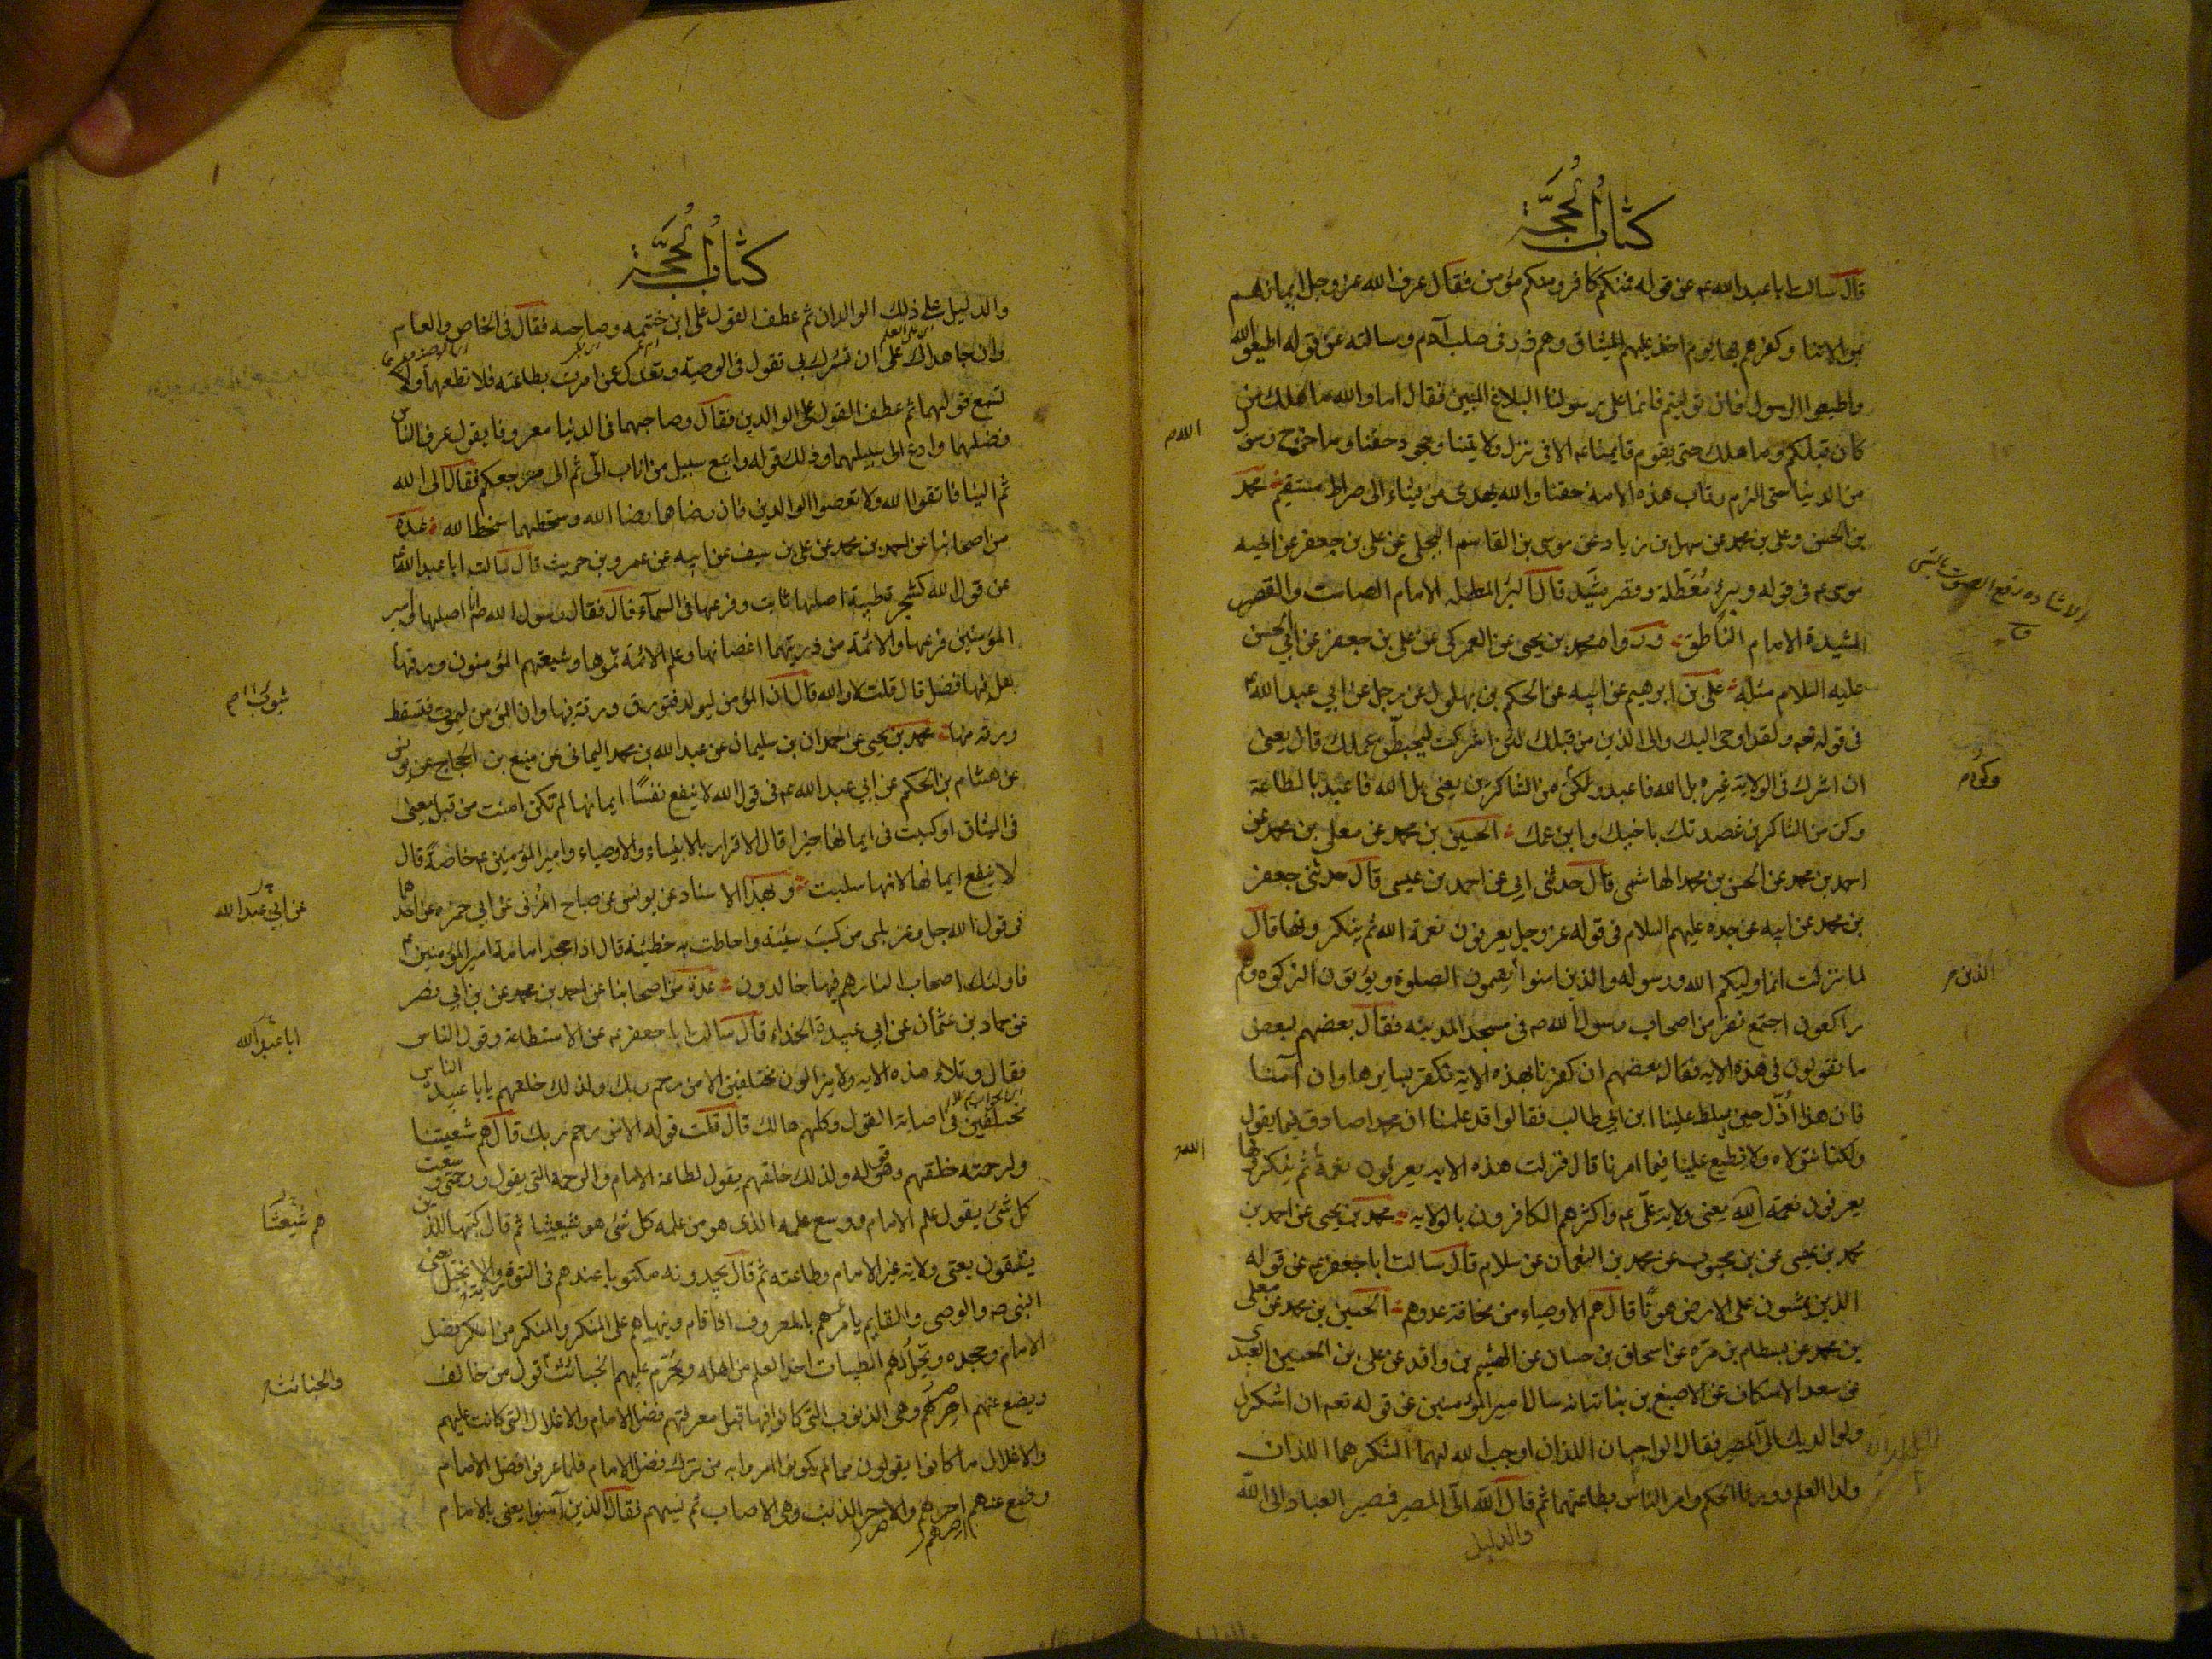 كتاب الحجة
قال سالت ابا عبد الله ع عن قوله فمنكم كافر ومنكم مؤمن فقال عرف الله عز وجل ايمانهم
بموالاتنا وكفرهم بها يوم اخذ عليهم الميثاق وهم ذر فى صلب آدم وسالته عن قوله اطيعوا الله
واطيعوا الرسول فان توليتم فانما على رسولنا البلاغ المبين فقال اما والله ما هلك من
كان قبلكم وما هلك حتى يقوم قايمنا ع الا فى ترك ولايتنا وجحود حقنا وما خرج رسول
الله ص
من الدنيا حتى الزم رقاب هذه الامة حقنا والله يهدى من يشاء الى صراط مستقيم محمد
بن الحسن وعلى بن محمد عن سهل بن زياد عن موسى بن القاسم البجلى عن على بن جعفر عن اخيه
موسى ع فى قوله وبئر معطلة وقصر مشيد قال البئر المعطلة الامام الصامت والقصر
المشيد الامام الناطق ورواه محمد بن يحيى عن العمركى عن على بن جعفر عن ابى الحسن
عليه السلام مثله على بن ابرهيم عن ابيه عن الحكم بن بهلول عن رجل عن ابى عبد الله ع
فى قوله تعه ولقد اوحى اليك والى الذين من قبلك لئن اشركت ليحبطن عملك قال يعنى
ان اشرك فى الولاية غيره بل الله فاعبد وكن من الشاكرين يعنى بل الله فاعبد بالطاعة
وكن من الشاكرين عضدتك باخيك وابن عمك الحسين بن محمد عن معلى بن محمد عن
احمد بن محمد عن الحسن بن محمد الهاشمى قال حدثنى ابى عن احمد بن عيسى قال حدثنى جعفر
بن محمد عن ابيه عن جده عليهم السلام فى قوله عز وجل يعرفون نعمة الله ثم ينكرونها قال
لما نزلت انما وليكم الله ورسوله والذين امنوا يقيمون الصلوة ويؤتون الزكوة وهم
الذين م
راكعون اجتمع نفر من اصحاب رسول الله ص فى مسجد المدينه فقال بعضهم لبعض
ما تقولون فى هذه الايه فقال بعضهم ان كفرنا بهذه الاية نكفر بسايرها وان آمنا
فان هذا ذل حين يسلط علينا ابن ابى طالب فقالوا قد علمنا ان محمدا صادق فيما يقول
ولكنا نتولاه ولا نطيع عليا فيما امرنا قال فنزلت هذه الايه يعرفون نعمة ثم ينكرونها
الله
يعرفون نعمة الله يعنى ولاية على ع واكثرهم الكافرون بالولايه محمد بن يحيى عن احمد بن
محمد بن عيسى عن بن محبوب عن محمد بن النعمان عن سلام قال سالت ابا جعفر ع عن قوله
الذين يمشون على الارض هونا قال هم الاوصياء من مخافة عدوهم الحسين بن محمد عن معلى
بن محمد عن بسطام بن مره عن اسحاق بن حسان عن الهيثم بن واقد عن على بن الحسين العبدى
عن سعد الاسكاف عن الاصبغ بن نباتة انه سال امير المؤمنين عن قوله تعه ان اشكر لى
ولوالديك الى المصير فقال الواجبان اللذان اوجب الله لهما الشكر هما اللذان
ولدا العلم وورثا الحكم وامر الناس بطاعتهما ثم قال الله الى المصير فمصير العباد الى الله
والدليل
كتاب الحجة
والدليل على ذلك الوالدان ثم عطف القول على ابن ختمه وصاحبه فقال فى الخاص والعام
وان جاهداك على ان تشرك بى تقول فى الوصية وتعدل عن امرت بطاعته فلا تطعهما ولا
تسمع قولهما ثم عطف القول على الوالدين فقال وصاحبهما فى الدنيا معروفا يقول عرف الناس
فضلهما وادع الى سبيلهما وذلك قوله واتبع سبيل من اناب الى ثم الى مرجعكم فقال الى الله
ثم الينا فاتقوا الله ولا تعصوا الوالدين فان رضاهما رضا الله وسخطهما سخط الله عدة
من اصحابنا عن احمد بن محمد عن على بن سيف عن ابيه عن عمرو بن حريث قال سالت ابا عبد الله ع
عن قول الله كشجرة طيبة اصلها ثابت وفرعها فى السمآء قال فقال رسول الله ص انا اصلها وامير
المؤمنين فرعها والائمة من ذريتهما اغصانها وعلم الائمة ثمرها وشيعتهم المؤمنون ورقها
هل فيها فضل قال قلت لا والله قال ان المؤمن ليولد فتورق ورقة فيها وان المؤمن ليموت فتسقط
ورقة منها محمد بن يحيى عن حمدان بن سليمان عن عبد الله بن محمد اليمانى عن منيع بن الحجاج عن يونس
عن هشام بن الحكم عن ابى عبد الله ع فى قول الله لا ينفع نفسا ايمانها لم تكن امنت من قبل يعنى
فى الميثاق او كسبت فى ايمانها خيرا قال الاقرار بالانبياء والاوصياء وامير المؤمنين ع خاصة قال
لا ينفع ايمانها لانها سلبت وبهذا الاسناد عن يونس عن صباح المزنى عن ابى حمزه عن احدهما
عن ابى عبد الله
فى قول الله جل وعز بلى من كسب سيئة واحاطت به خطيئته قال اذا جحد امامة امير المؤمنين ع
فاولئك اصحاب النار هم فيها خالدون عدة من اصحابنا عن احمد بن محمد عن بن ابى نصر
عن حماد بن عثمان عن ابى عبيدة الحذاء قال سالت ابا جعفر ع عن الاستطاعة وقول الناس
ابا عبد الله
فقال وتلا هذه الايه ولا يزالون مختلفين الا من رحم ربك ولذلك خلقهم يا با عبيده
الناس
مختلفين فى اصابة القول وكلهم هالك قال قلت قوله الا من رحم ربك قال هم شيعتنا
ولرحمته خلقهم وهو قوله ولذلك خلقهم يقول لطاعة الامام والرحمة التى يقول ورحمتى وسعت
كل شئ يقول علم الامام ووسع علمه الذى هو من علمه كل شئ هو شيعتنا ثم قال كتبها للذين
هم شيعتنا
يتقون يعنى ولاية غير الامام وطاعته ثم قال يجدونه مكتوبا عندهم فى التورة والانجيل يعنى
النبى ص والوصى والقايم يامرهم بالمعروف اذا قام وينهاهم على المنكر والمنكر من انكر فضل
الامام وجحده ويحل لهم الطيبات اخذ العلم من اهله ويحرم عليهم الخبائث قول من خالف
والخبائث
ويضع عنهم اصرهم وهى الذنوب التى كانوا فيها قبل معرفتهم فضل الامام والاغلال التى كانت عليهم
والاغلال ما كانوا يقولون مما لم يكونوا امروا به من ترك فضل الامام فلما عرفوا فضل الامام
وضع عنهم اصرهم والاصر الذنب وهى الاصاب ثم نسبهم فقال الذين آمنوا يعنى بالامام